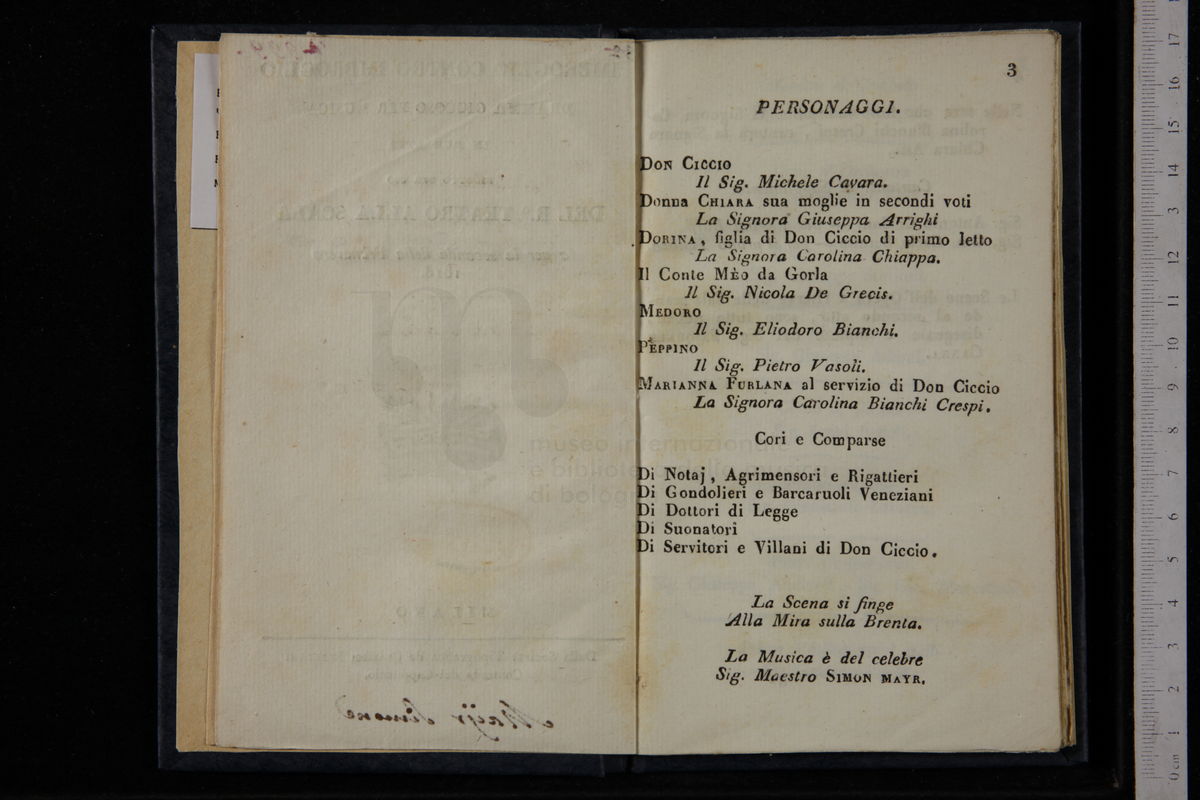 3
PERSONAGGI.
DON CICCIO
Il Sig. Michele Cavara.
Donna CHIARA sua moglie in secondi voti
La Signora Giuseppa Arrighi
DORINA, figlia di Don Ciccio di primo letto
La Signora Carolina Chiappa.
Il Conte MÈO da Gorla
Il Sig. Nicola De Grecis.
MEDORO
Il Sig. Eliodoro Bianchi.
PEPPINO
Il Sig. Pietro Vasoli.
MARIANNA FURLANA al servizio di Don Ciccio
La Signora Carolina Bianchi Crespi.
Cori e Comparse
Di Notaj, Agrimensori e Rigattieri
Di Gondolieri e Barcaruoli Veneziani
Di Dottori di Legge
Di Suonatori
Di Servitori e Villani di Don Ciccio.
La Scena si finge
Alla Mira sulla Brenta.
La Musica è del celebre
Sig. Maestro SIMON MAYR.
museo internazionale
e biblioteca
di bologna
0 cm 1 2 3 4 5 6 7 8 9 10 11 12 13 14 15 16 17